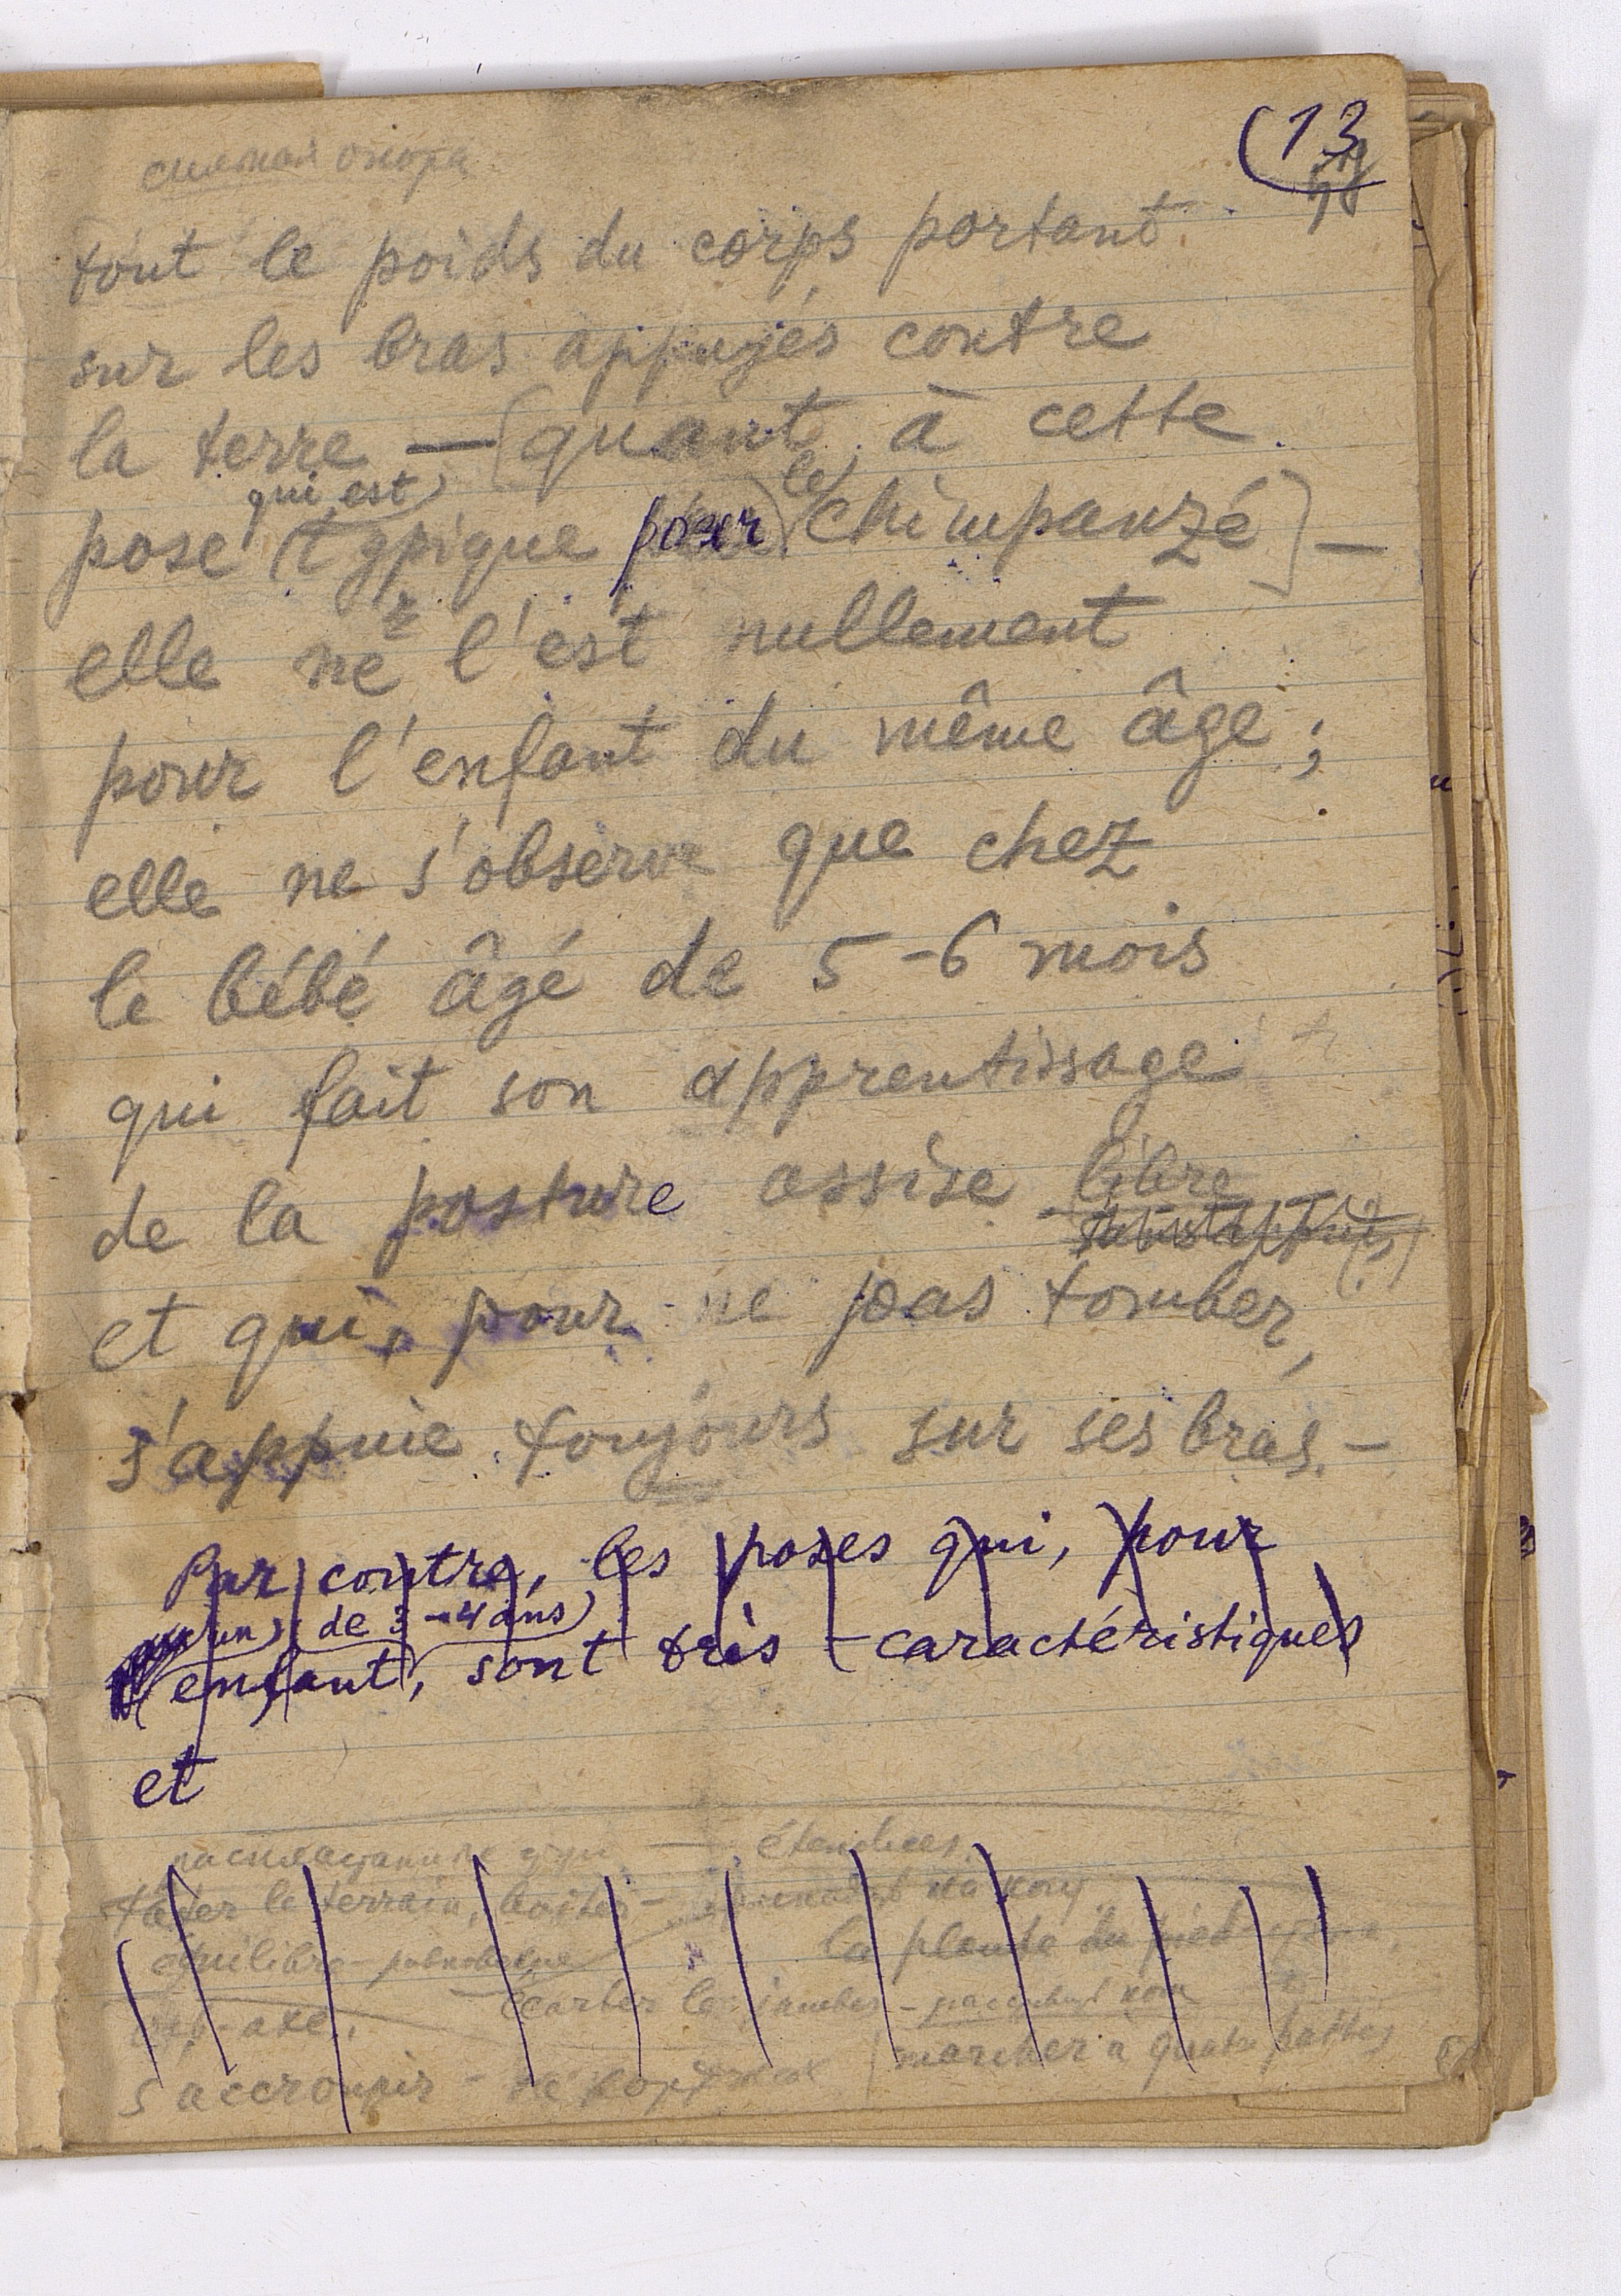 (13
сильная опора
tout le poids du corps portant
sur les bras appuyés contre
la terre — [quant à cette
qui est le
pose (typique pour chimpanzé] —
elle ne l'est nullement
pour l'enfant du même âge;
elle ne s'observe que chez
le bébé âgé de 5-6 mois
qui fait son apprentissage
de la posture assise libre
et qui, pour ne pas tomber,
s'appuie toujours sur ses bras. —
Par contre, les poses qui, pour
un de 3-4 ans
enfant, sont très caractéristiques
et
étendues
tâter le terrain,
équilibre -
la plante du pied
écarter les jambes -
marcher à quatre pattes
s'accroupir -